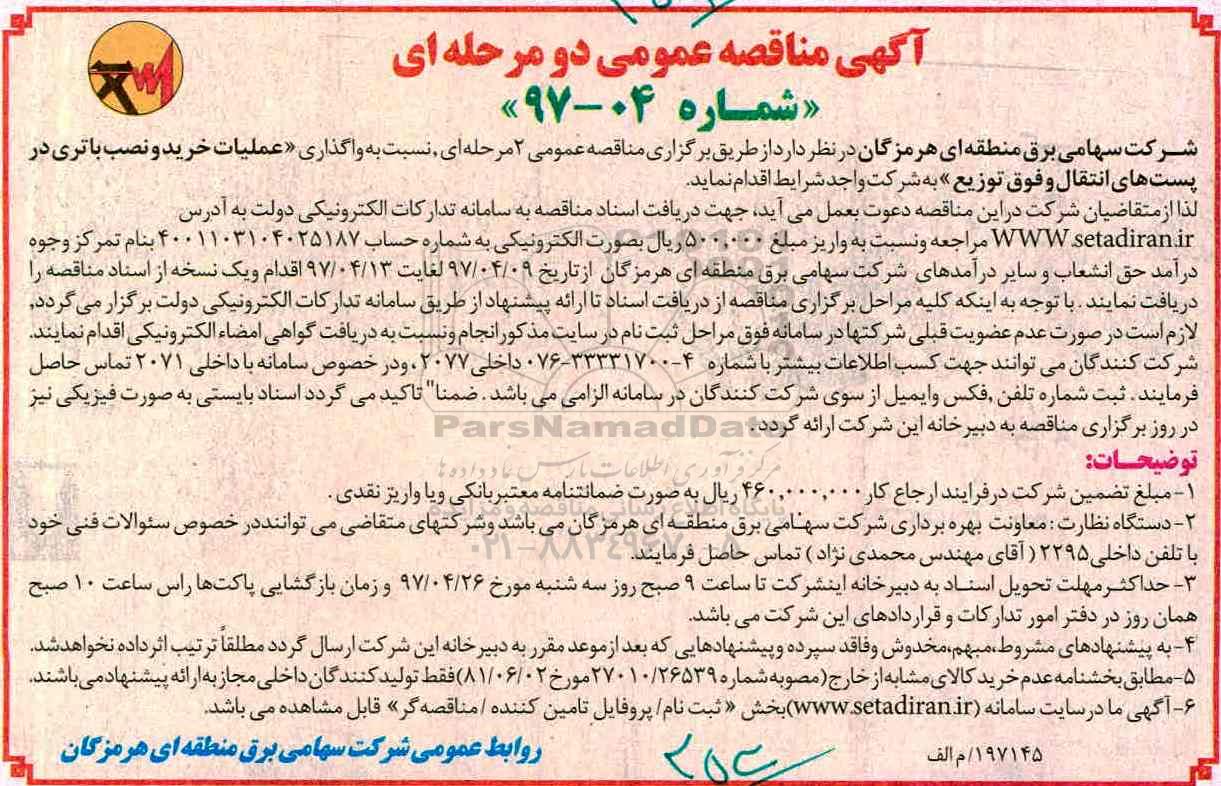 آگهی مناقصه عمومی دو مرحله ای
«شماره ۰۴-۹۷»
شرکت سهامی برق منطقه ای هرمزگان در نظر دارد از طریق برگزاری مناقصه عمومی ۲ مرحله ای ,نسبت به واگذاری «عملیات خرید و نصب باتری در
پست های انتقال و فوق توزیع» به شرکت واجد شرایط اقدام نماید.
لذا از متقاضیان شرکت در این مناقصه دعوت بعمل می آید، جهت دریافت اسناد مناقصه به سامانه تدارکات الکترونیکی دولت به آدرس
WWW.setadiran.ir مراجعه و نسبت به واریز مبلغ ۵۰۰,۰۰۰ ریال بصورت الکترونیکی به شماره حساب ۴۰۰۱۱۰۳۱۰۴۰۲۵۱۸۷ بنام تمرکز وجوه
درآمد حق انشعاب و سایر درآمدهای شرکت سهامی برق منطقه ای هرمزگان از تاریخ ۹۷/۰۴/۰۹ لغایت ۹۷/۰۴/۱۳ اقدام و یک نسخه از اسناد مناقصه را
دریافت نمایند . با توجه به اینکه کلیه مراحل برگزاری مناقصه از دریافت اسناد تا ارائه پیشنهاد از طریق سامانه تدارکات الکترونیکی دولت برگزار می گردد,
لازم است در صورت عدم عضویت قبلی شرکتها در سامانه فوق مراحل ثبت نام در سایت مذکور انجام و نسبت به دریافت گواهی امضاء الکترونیکی اقدام نمایند.
شرکت کنندگان می توانند جهت کسب اطلاعات بیشتر با شماره ۴-۳۳۳۳۱۷۰۰-۰۷۶ داخلی ۲۰۷۷ ، و در خصوص سامانه با داخلی ۲۰۷۱ تماس حاصل
فرمایند . ثبت شماره تلفن ,فکس و ایمیل از سوی شرکت کنندگان در سامانه الزامی می باشد . ضمنا" تاکید می گردد اسناد بایستی به صورت فیزیکی نیز
در روز برگزاری مناقصه به دبیرخانه این شرکت ارائه گردد.
ParsNamadData
مرکز فرآوری اطلاعات پارس نماد داده ها
توضیحات:
۱-مبلغ تضمین شرکت در فرایند ارجاع کار ۴۶۰,۰۰۰,۰۰۰ ریال به صورت ضمانتنامه معتبر بانکی و یا واریز نقدی .
پایگاه اطلاع رسانی مناقصه و مزایده
۲-دستگاه نظارت : معاونت بهره برداری شرکت سهامی برق منطقه ای هرمزگان می باشد و شرکتهای متقاضی می توانند در خصوص سئوالات فنی خود
با تلفن داخلی ۲۲۹۵ ( آقای مهندس محمدی نژاد ) تماس حاصل فرمایند.
۳- حداکثر مهلت تحویل اسناد به دبیرخانه اینشرکت تا ساعت ۹ صبح روز سه شنبه مورخ ۹۷/۰۴/۲۶ و زمان بازگشایی پاکت ها راس ساعت ۱۰ صبح
همان روز در دفتر امور تدارکات و قراردادهای این شرکت می باشد.
۴-به پیشنهادهای مشروط،مبهم،مخدوش وفاقد سپرده و پیشنهادهایی که بعد از موعد مقرر به دبیرخانه این شرکت ارسال گردد مطلقاً ترتیب اثر داده نخواهد شد.
۵-مطابق بخشنامه عدم خرید کالای مشابه از خارج (مصوبه شماره ۲۷۰۱۰/۲۶۵۳۹ مورخ ۸۱/۰۶/۰۲)فقط تولید کنندگان داخلی مجاز به ارائه پیشنهاد می باشند.
۶-آگهی ما در سایت سامانه (www.setadiran.ir)بخش « ثبت نام / پروفایل تامین کننده / مناقصه گر» قابل مشاهده می باشد.
۱۹۷۱۴۵/م الف
روابط عمومی شرکت سهامی برق منطقه ای هرمزگان